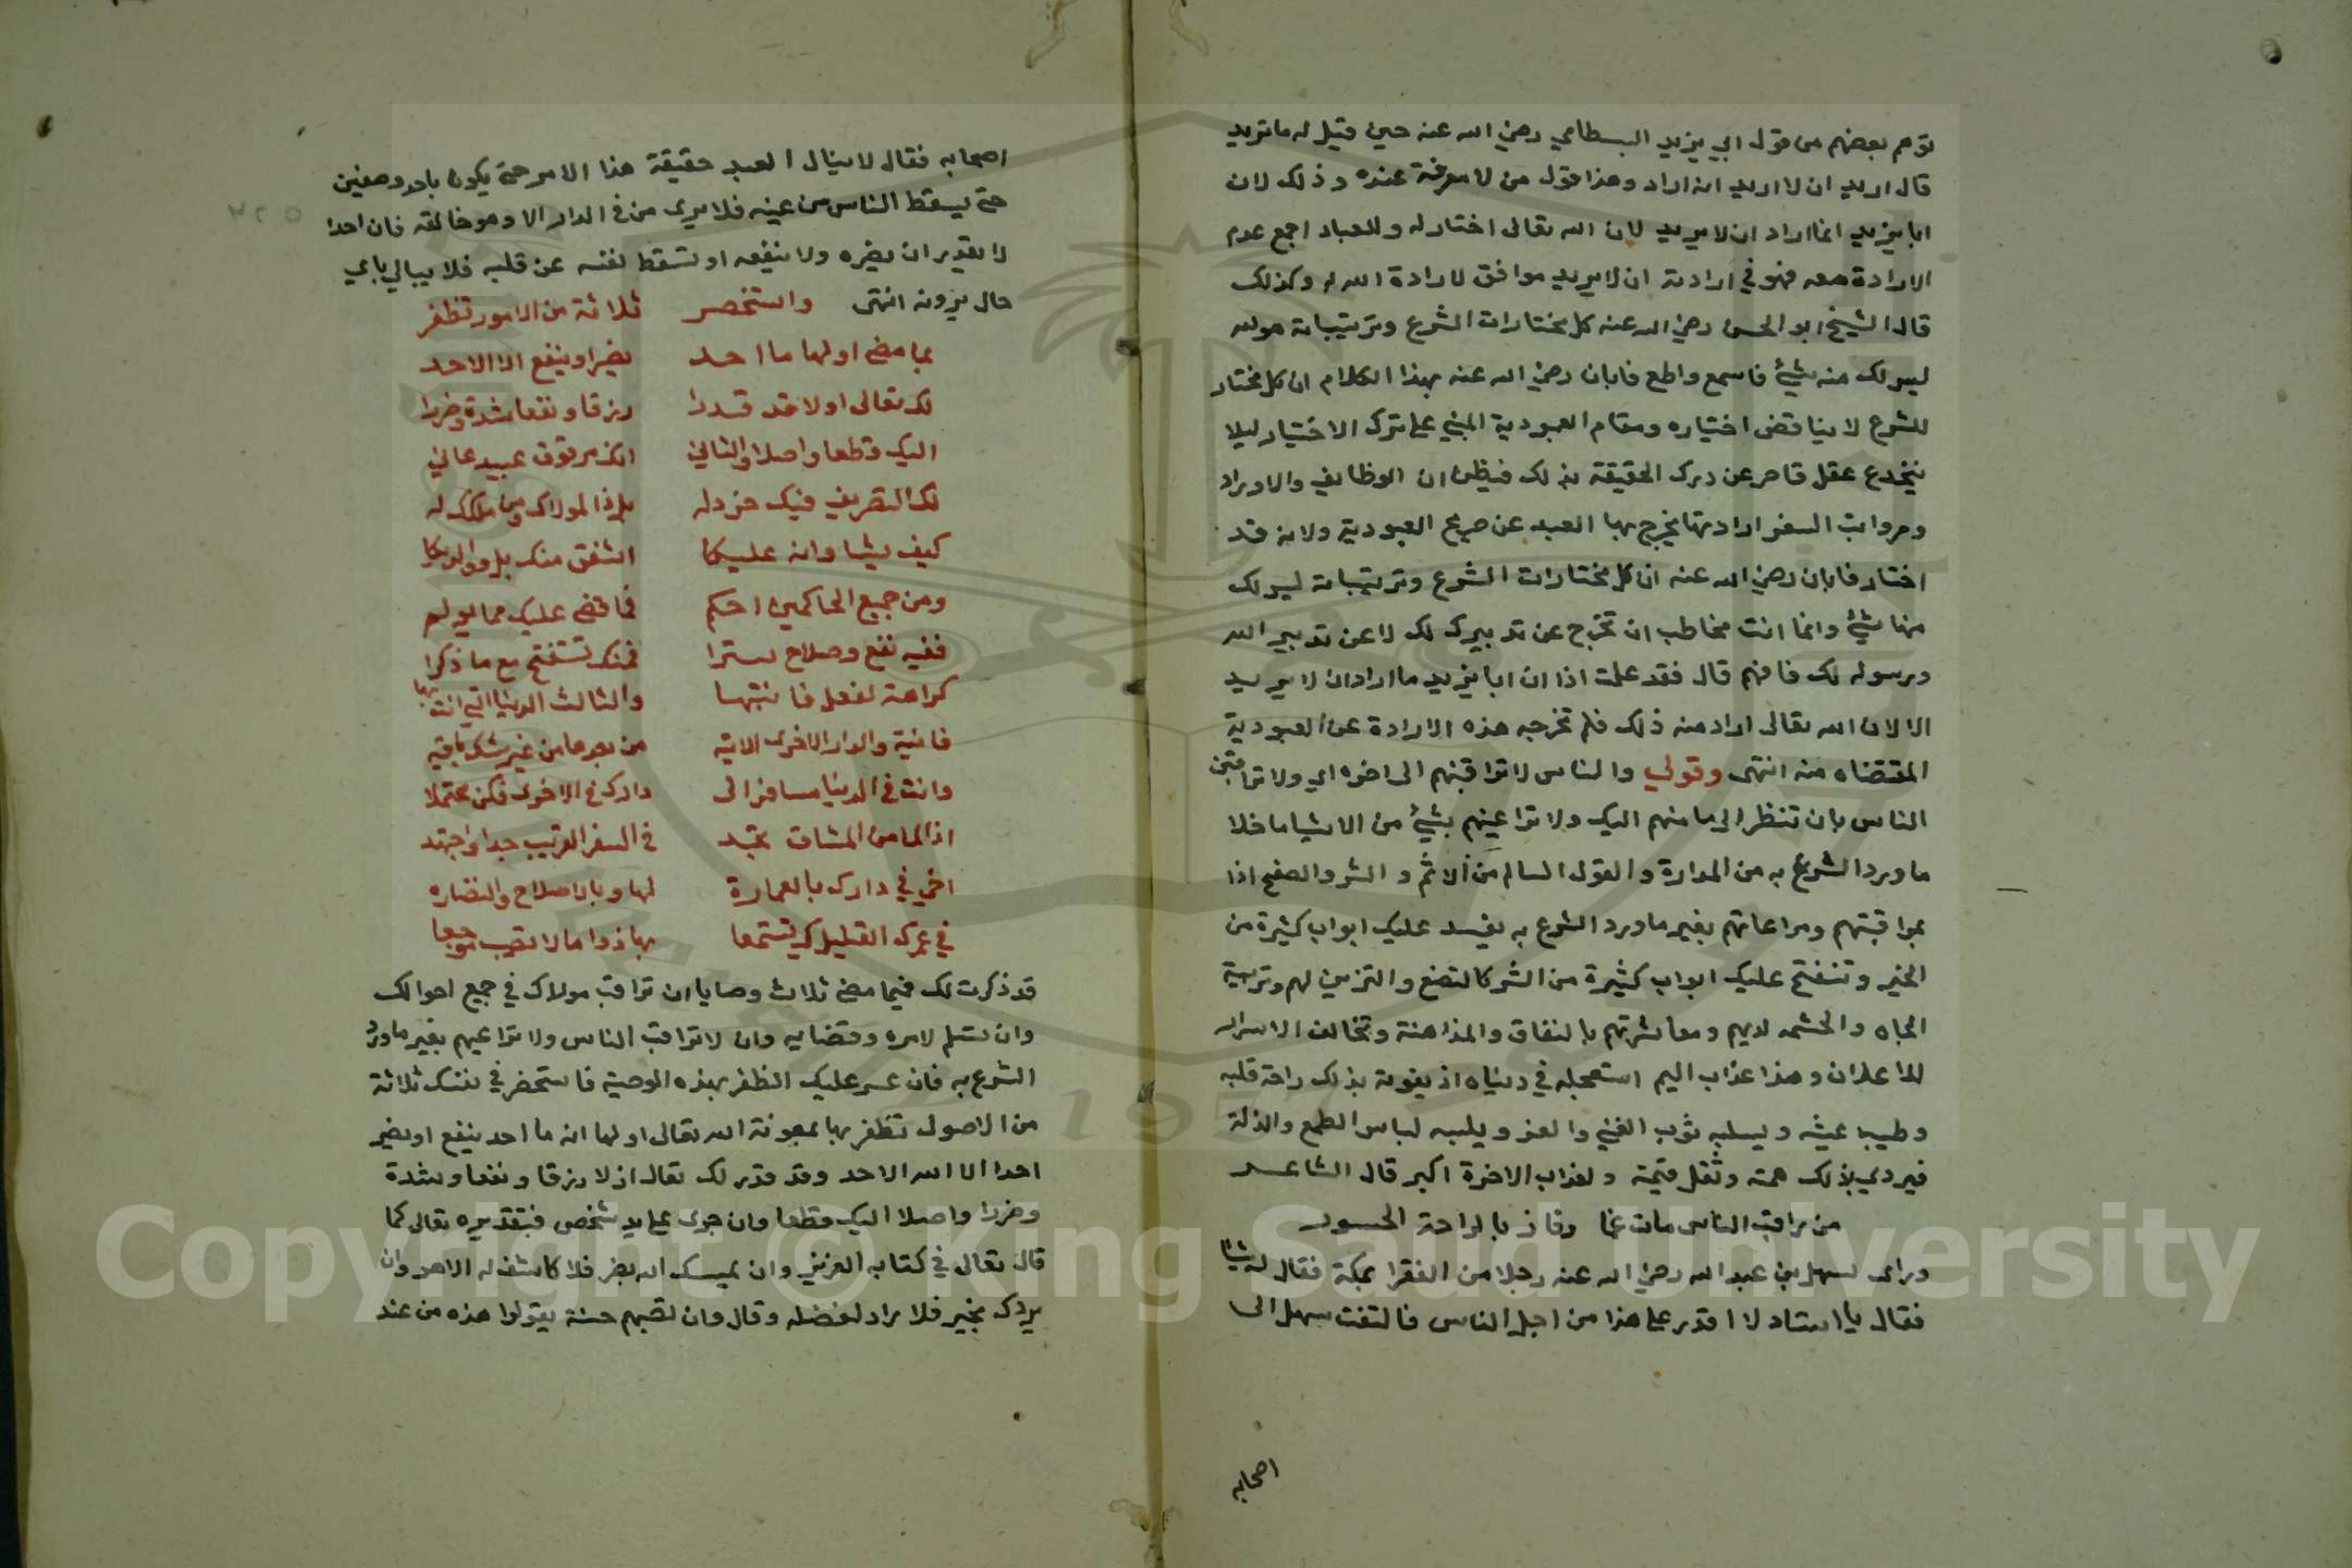 توهم بعضهم من قول ابي يزيد البسطامي رضي الله عنه حين قيل له ما تريد
قال اريد ان لا اريد انه اراد وهذا قول من لا معرفة عنده وذلك لان
ابا يزيد انما اراد ان لا يريد لان الله تعالى اختار له وللعباد اجمع عدم
الارادة معه فهو في ارادته ان لا يريد موافق لارادة الله له وكذلك
قال الشيخ ابو الحسن رضي الله عنه كل مختارات الشرع وترتيباته هو لله
ليس لك منه شيء فاسمع واطع فابان رضي الله عنه بهذا الكلام ان كل مختار
للشرع لا يناقض اختياره ومقام العبودية المبني على ترك الاختيار ليلا
ينخدع عقل قاصر عن درك الحقيقة بذلك فيظن ان الوظايف والاوراد
ورواتب السنن ارادتها يخرج بها العبد عن صريح العبودية ولانه قد
اختار فابان رضي الله عنه ان كل مختارات الشرع وترتيباته ليس لك
منها شيء وانما انت مخاطب ان تخرج عن تدبيرك لك لا عن تدبير الله
ورسوله لك فافهم قال فقد علمت اذا ان ابا يزيد ما اراد ان لا يريد
الا لان الله تعالى اراد منه ذلك فلم تخرجه هذه الارادة عن العبودية
المقتضاه منه انتهى وقولي والناس لا تراقبنهم الى اخره اي ولا تراقبن
الناس بان تنظر الى ما منهم اليك ولا تراعيهم بشيء من الاشيا ما خلا
ما ورد الشرع به من المدارة والقول السالم من الاثم و الشر والصفح اذا
بمراقبتهم ومراعاتهم بغير ما ورد الشرع به يفسد عليك ابواب كثيرة من
الخير وتنفتح عليك ابواب كثيرة من الشر كالتصنع والتزين لهم وتربية
الجاه والحشمه لديهم ومعاشرتهم بالنفاق والمداهنة وتخالف الاسرار
للاعلان وهذا عذاب اليم استعجله في دنياه اذ يفوته بذلك راحة قلبه
وطيب عيشه ويسلبه ثوب الغني والعز ويلبسه لباس الطمع والذلة
فيردي بذلك همته وتقل قيمته ولعذاب الاخرة اكبر قال الشاعر
من راقب الناس مات غما وفاز بالراحة الجسور
وراى سهل بن عبد الله رضي الله عنه رجلا من الفقرا بمكة فقال له شيئا
فقال يا استاد لا اقدر على هذا من اجل الناس فالتفت سهل الى
اصحابه
اصحابه فقال لا ينال العبد حقيقة هذا الامر حتى يكون باحد وصفين
حتى يسقط الناس من عينه فلا يرى من في الدار الا وهو خالقه فان احدا
لا يقدر ان يضره ولا ينفعه او تسقط نفسه عن قلبه فلا يبالي باي
حال يرونه انتهى واستحضر ثلاثة من الامور تظفر
بما مضى اولها ما احد يضر او ينفع الا الاحد
لك تعالى اولا قد قدرا رزقا ونفعا شدة وضررا
اليك قطعا واصلا والثاني انك مرقوق عبيد عاني
لك التصريف فيك حز دله بل ذا لمولاك ومن ملكك له
كيف يشا وانه عليكا اشفق منك بل ووالديكا
ومن جميع الحاكمين احكم فما قضى عليك مما يولم
ففيه نفع وصلاح سترا فمنك تستفتح مع ما ذكرا
كراهة لفعل فانتبها والثالث الدنيا التي انت بها
فانية والدار الاخرى الاتيه من بعدها من غير شك باقيه
وانت في الدنيا مسافر الى دارك في الاخرى فكن محتملا
اذا لما من المشاق تجد في السفر القريب جدا واجتهد
اخي في دارك بالعمارة لها وبالاصلاح والنضاره
في عمرك القليل كي تستمتعا بها ذواما لا تصب موجعا
قد ذكرت لك فيما مضى ثلاث وصايا ان تراقب مولاك في جميع احوالك
وان تستلم لامره وقضايه وان لا تراقب الناس ولا تراعيهم بغير ما ورد
الشرع به فان عسر عليك الظفر بهذه الوصية فاستحضر في نفسك ثلاثة
من الاصول تظفر بها بمعونة الله تعالى اولها انه ما احد ينفع او يضر
احدا الا الله الاحد وقد قدر لك تعالى ازلا رزقا ونفعا وشدة
وضررا واصلا اليك قطعا وان جرى على يد شخص فبتقديره تعالى كما
قال تعالى في كتابه العزيز وان يمسسك الله بضر فلا كاشف له الا هو وان
يردك بخير فلا راد لفضله وقال وان تصبهم حسنة يقولوا هذه من عند
Copyright © King Saud University
1957